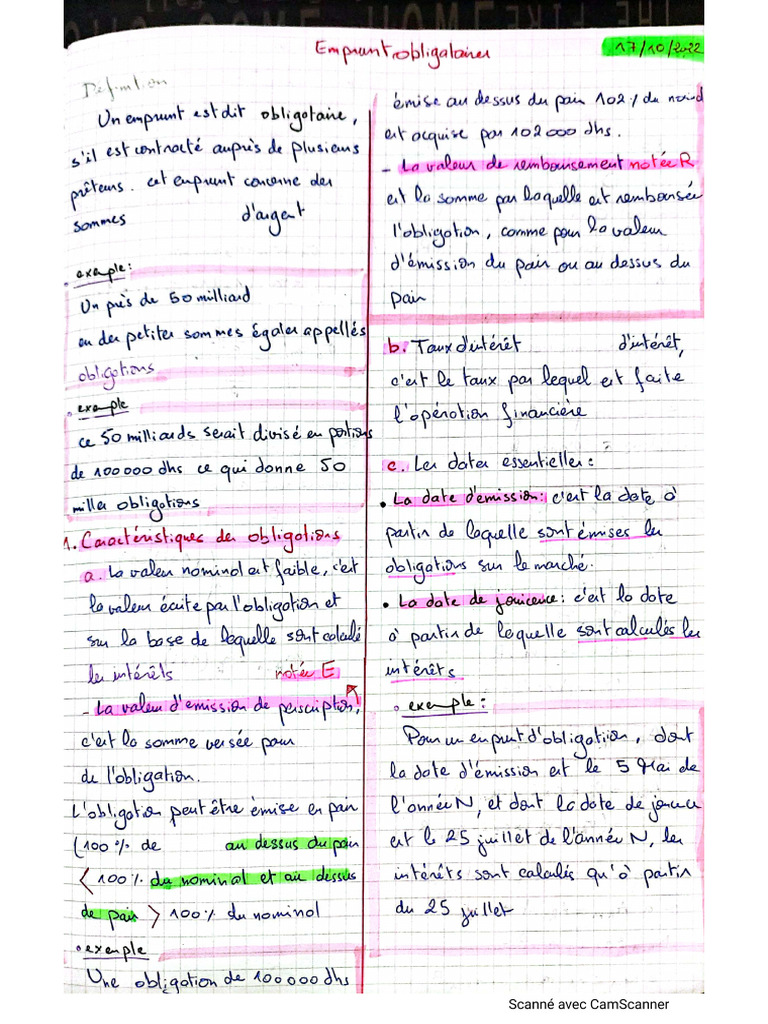 Emprunt obligataires
17/10/2022
Définition
Un emprunt est dit obligataire,
s'il est contracté auprès de plusieurs
prêteurs. cet emprunt concerne des
sommes d'argent
• exemple :
Un près de 50 milliard
en des petites sommes égales appellés
obligations
• exemple
ce 50 milliards serait divisé en portions
de 100000 dhs ce qui donne 50
milles obligations
1. Caractéristiques des obligations
a. La valeur nominal est faible, c'est
la valeur écrite par l'obligation et
sur la base de lequelle sont calculé
les intérêts notée E
- La valeur d'émission de perscription,
c'est la somme versée pour
de l'obligation.
L'obligation peut être émise en pair
(100% de au dessus du pair
< 100% du nominal et au dessus
de pair > 100% du nominal
• exemple
Une obligation de 100000 dhs
émise au dessus du pair 102% du
est acquise par 102000 dhs.
- La valeur de remboursement notée R
est la somme par laquelle est remboursée
l'obligation, comme pour la valeur
d'émission du pair ou au dessus du
pair
b. Taux d'intérêt d'intérêt,
c'est le taux par lequel est faite
l'opération financière
c. Les dates essentielles :
• La date d'émission : c'est la date à
partir de laquelle sont émises les
obligations sur le marché.
• La date de jouicence : c'est la date
à partir de laquelle sont calculés les
intérêts
• exemple :
Pour un enprunt d'obligation, dont
la date d'émission est le 5 Mai de
l'année N, et dont la date de
est le 25 juillet de l'année N, les
intérêts sont calculés qu'à partir
du 25 juillet
Scanné avec CamScanner